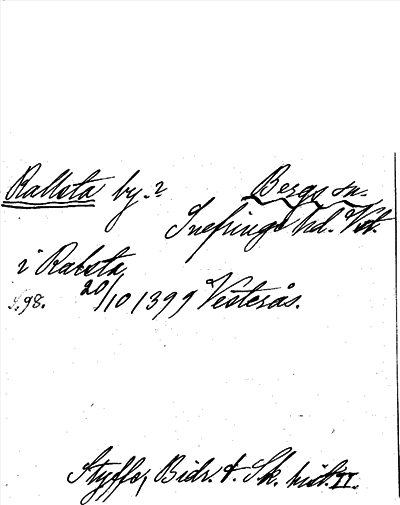 Rallsta by.? Bergs sn.
Snefringe hd. Vstm.
i Ralsta
S. 98. 20/10 1399 Vesterås.
Styffe, Bidr. t. Sk. hist. II.